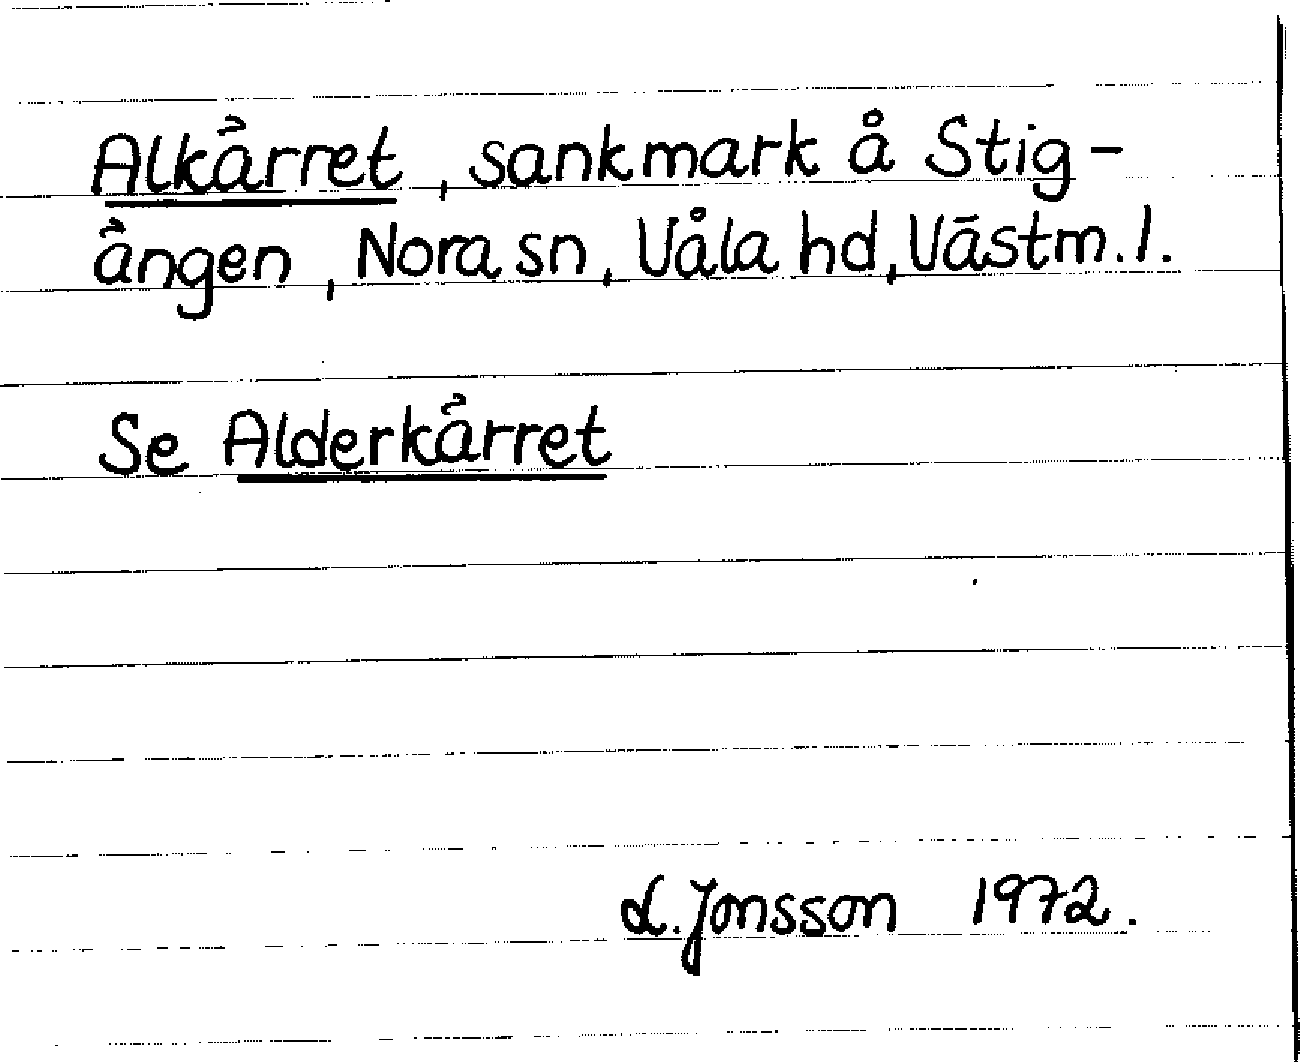 Alkärret, sankmark å Stig-
ängen, Nora sn, Våla hd, Västm. l.
Se Alderkärret
L. Jonsson 1972.